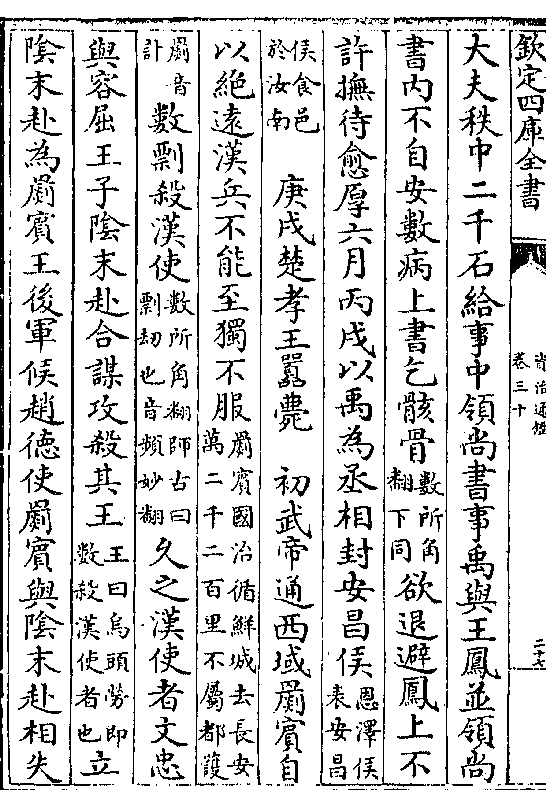 欽定四庫全書
資治通鑑
卷三十
二十七
大夫秩中二千石給事中領尚書事禹與王鳳並領尚
書内不自安數病上書乞骸骨數所角翻下同欲退避鳳上不
許撫待愈厚六月丙戌以禹為丞相封安昌侯恩澤侯表安昌
侯食邑於汝南 庚戌楚孝王囂薨 初武帝通西域罽賓自
以絶遠漢兵不能至獨不服罽賓國治循鮮城去長安萬二千二百里不屬都護
罽音計數剽殺漢使數所角翻師古曰剽劫也音頻妙翻久之漢使者文忠
與容屈王子陰末赴合謀攻殺其王王曰烏頭勞即數殺漢使者也立
陰末赴為罽賓王後軍候趙德使罽賓與陰末赴相失